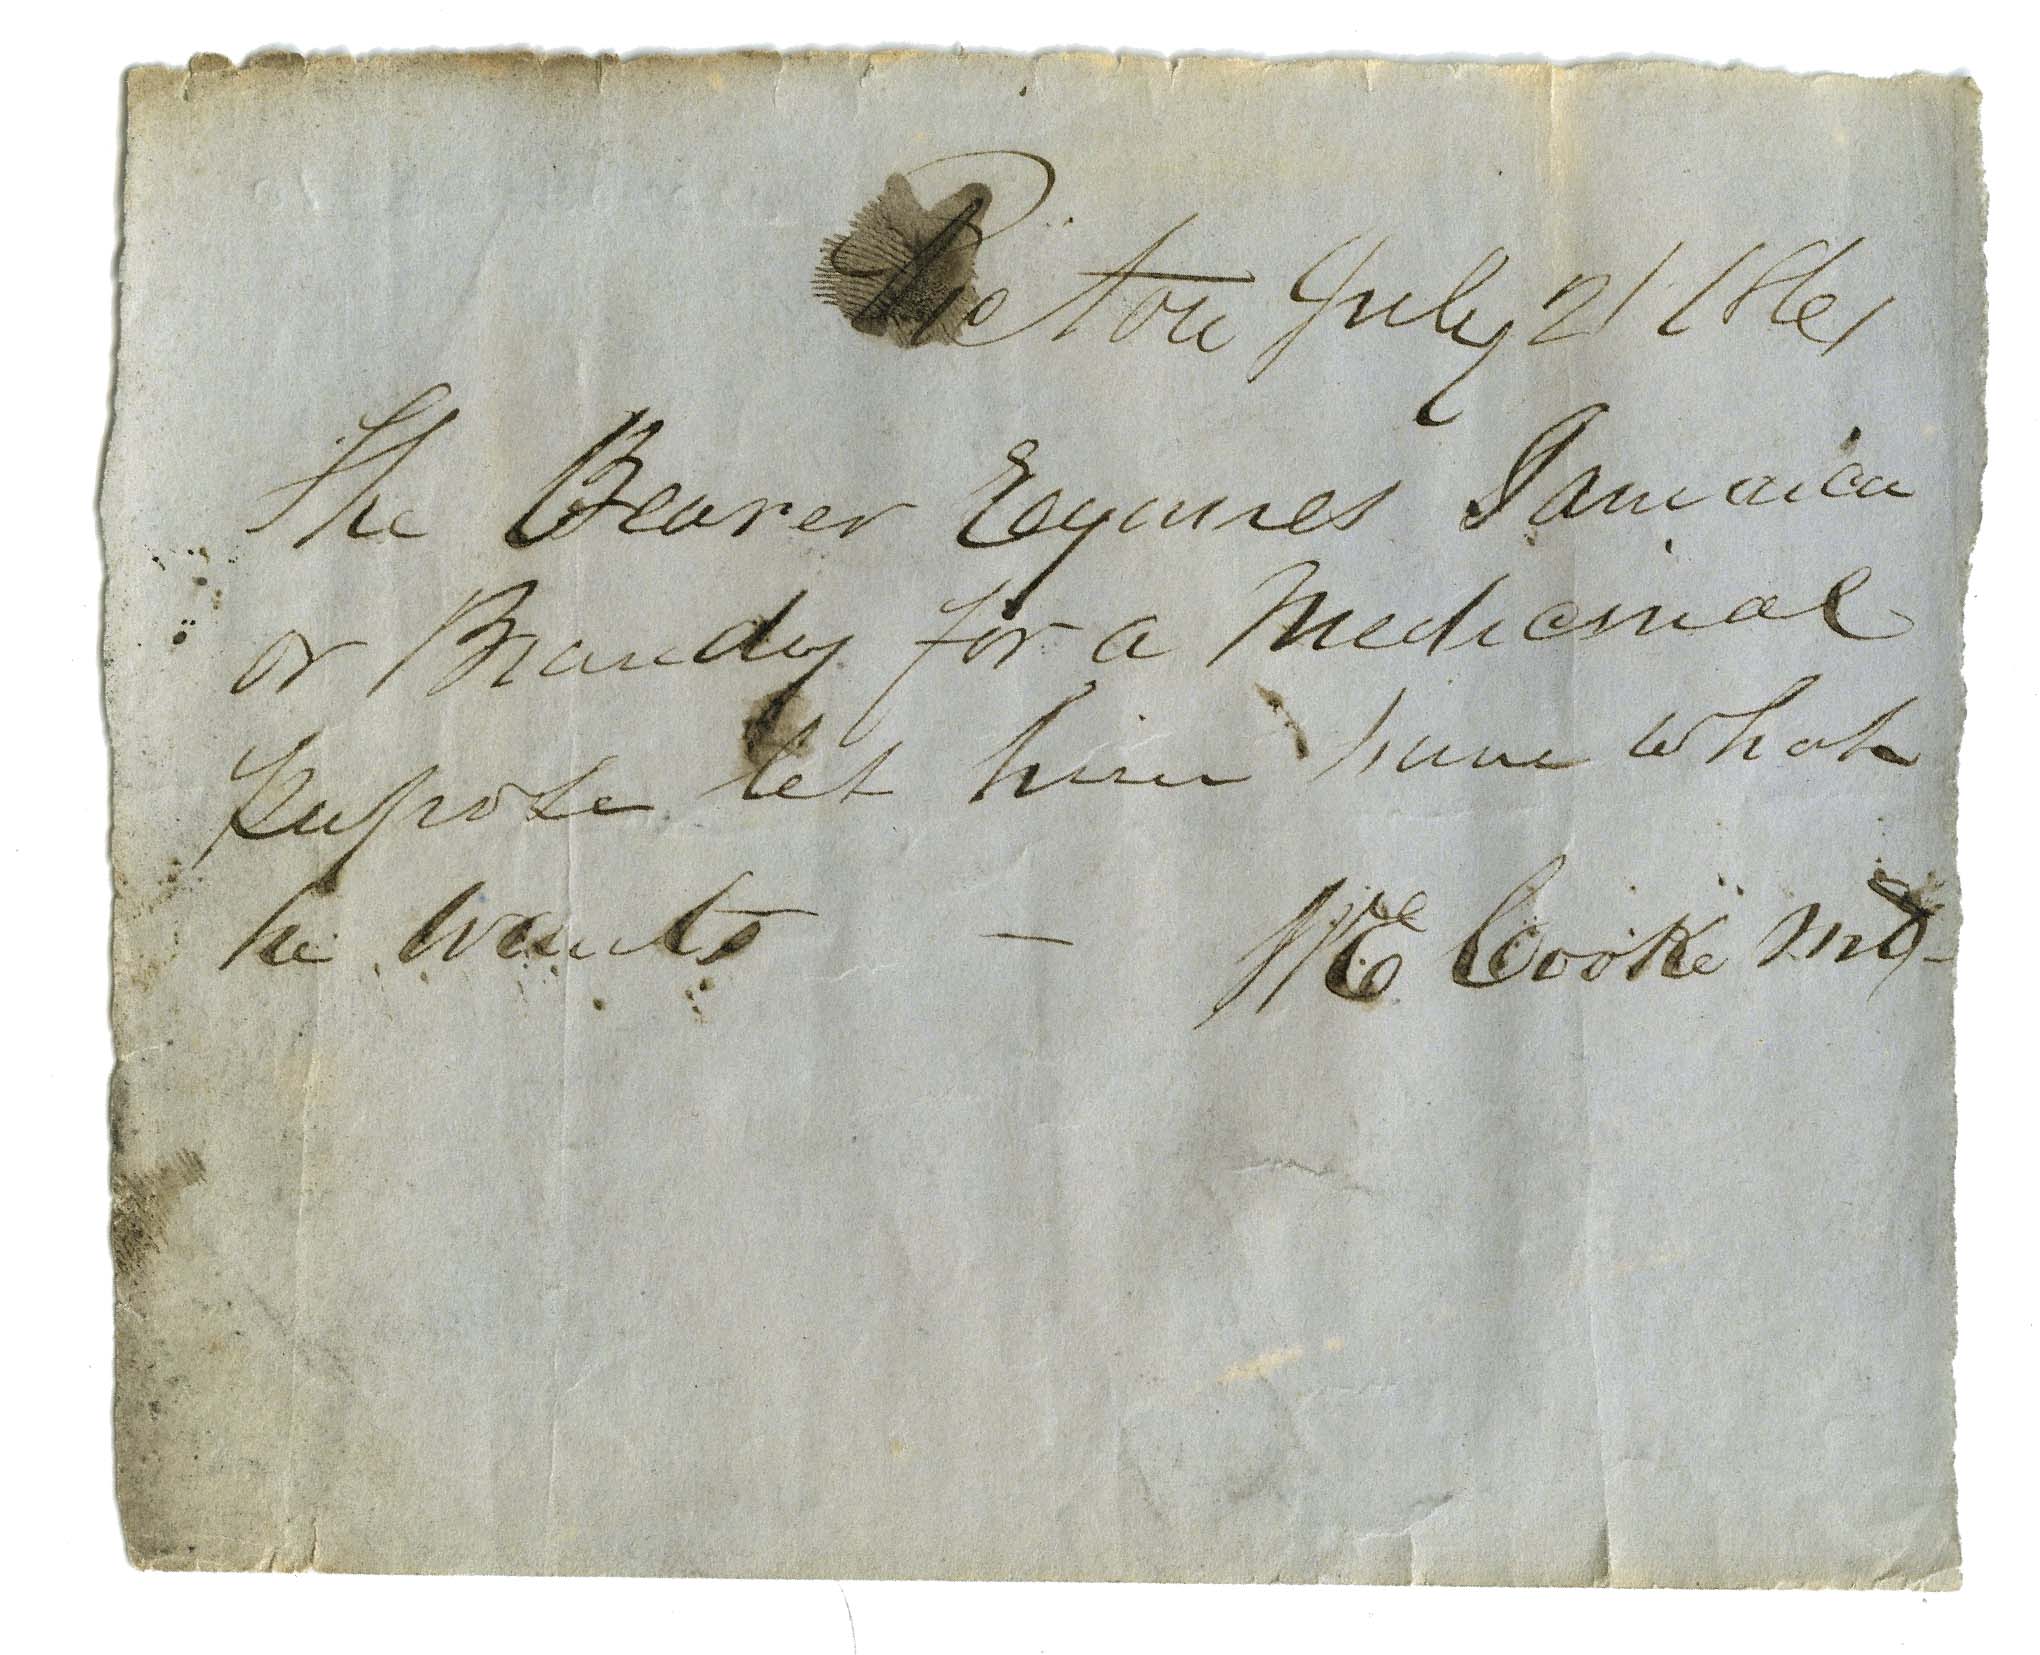 Picton July 21 1861
The Bearer Eequires Jamaica
or Brandy for a Medicinal
Pupose let him have what
he wants — WE Cooke MD